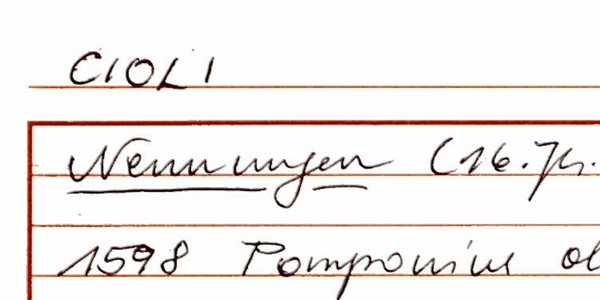 CIOLI
Nennungen (16. Jh.
1598 Pomponius